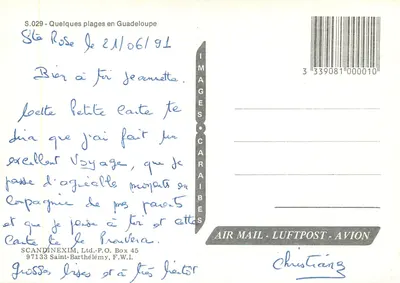 S.029 - Quelques plages en Guadeloupe
Ste Rose le 21/06/91
Bien à toi Jeannette.
Cette Petite Carte te
dira que j'ai fait un
excellent Voyage, que je
passe d'agréable moments en
compagnie de mes parents
et que je pense à toi et cette
Carte te le Prouvera.
SCANDINEXIM, Ltd.-P.O. Box 45
97133 Saint-Barthélémy, F.W.I.
Grosses bises et à très bientôt
IMAGES CARAIBES
3 339081 000010
AIR MAIL - LUFTPOST - AVION